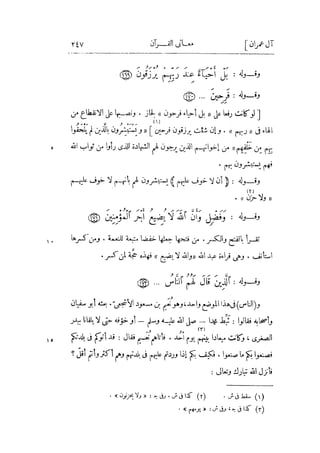 آل عمران ]
معانى القرآن
٢٤٧
وقوله : بَلْ أَحْيَاءٌ عِندَ رَبِّهِمْ يُرْزَقُونَ ﴿١٦٩﴾
وقوله : فَرِحِينَ ... ﴿١٧٠﴾
[ لو كانت رفعا على « بل أحياء فرحون » لجاز . ونصبها على الانقطاع من
الهاء فى « ربهم » . وإن شئت يرزقون فرحين ](١) « ويستبشرون بالذين لم يلحقوا
بهم من خلفهم » من إخوانهم الذين يرجون لهم الشهادة للذى رأوا من ثواب الله
٥
فهم يستبشرون بهم .
وقوله : ﴿ أن لا خوف عليهم ﴾ يستبشرون لهم بأنهم لا خوف عليهم
« ولا حزن »(٢) .
وقوله : وَفَضْلٍ وَأَنَّ اللَّهَ لَا يُضِيعُ أَجْرَ الْمُؤْمِنِينَ ﴿١٧١﴾
تقرأ بالفتح والكسر . من فتحها جعلها خفضا متبعة للنعمة . ومن كسرها
١٠
استأنف . وهى قراءة عبد الله « والله لا يضيع » فهذه حجة لمن كسر .
وقوله : الَّذِينَ قَالَ لَهُمُ النَّاسُ ... ﴿١٧٣﴾
و (الناس) فى هذا الموضع واحد ، وهو نُعَيم بن مسعود الأشجعىّ . بعثه أبو سفيان
وأصحابه فقالوا : ثَبِّط محمدا — صلى الله عليه وسلم — أو خوّفه حتى لا يلقانا ببدر
الصغرى ، وكانت ميعادا بينهم يوم(٣) أُحُد . فأتاهم نُعَيم فقال : قد أتوكم فى بلدتكم
١٥
فصنعوا بكم ما صنعوا ، فكيف بكم إذا وردتم عليهم فى بلدتهم وهم أكثر وأنتم أقلّ ؟
فأنزل الله تبارك وتعالى :
(١) سقط فى ش . (٢) كذا فى ش . وفى ج : « ولا يحزنون » .
(٣) كذا فى ج ، وفى ش : « يومهم » .